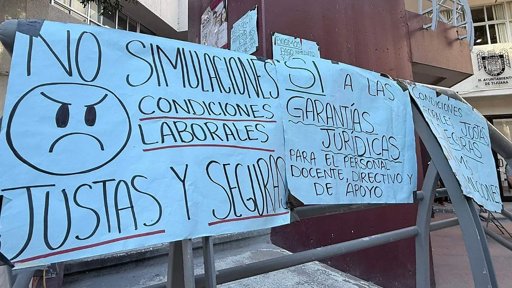 NO SIMULACIONES
CONDICIONES
LABORALES
JUSTAS Y SEGURAS
SÍ A LAS
GARANTÍAS
JURÍDICAS
PARA EL PERSONAL
DOCENTE, DIRECTIVO y
y DE APOYO
CONDICIONES
JUSTAS
H. AYUNTAMIENTO DE
TIJUANA